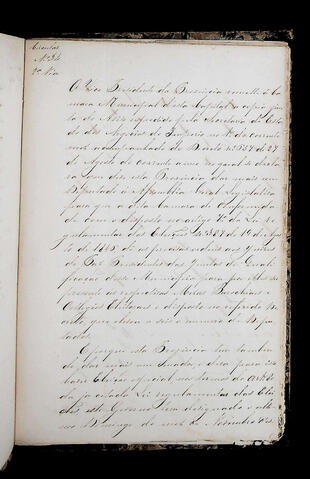 Circular
Nº 34
2ª Via
O Vice Presidente da Provincia remette á Ca
mara Municipal desta Capital a copia jun
ta do Aviso expedido pela Secretaria de Esta
do dos Negocios do Imperio no 1º do corrente
mez acompanhado do Decreto nº 1837 de 27
de Agosto do corrente anno no qual se declara
que dê esta Provincia dar mais um
Deputado á Assembléa Geral Legislativa
para que a dita Camara de conformida
de com o disposto no artigo da Lei re
gulamentar das Eleições nº 387 de 19 de Agos
to de 1846 dê as precisas ordens aos Juizes
de Paz Presidentes das Juntas de Quali
ficação desse Municipio para que
presente as respectivas Mesas Parochiaes e
Collegios Eleitoraes o disposto no referido De
creto, que eleva a seis o numero de Depu
tados.
E porque esta Provincia tem tambem
de dar mais um Senador, e deva para is
haver Eleição especial nos termos do artº
da já citada Lei regulamentar das Elei
ções, este Governo tem designado o ulti
mo Domingo do mez de Novembro